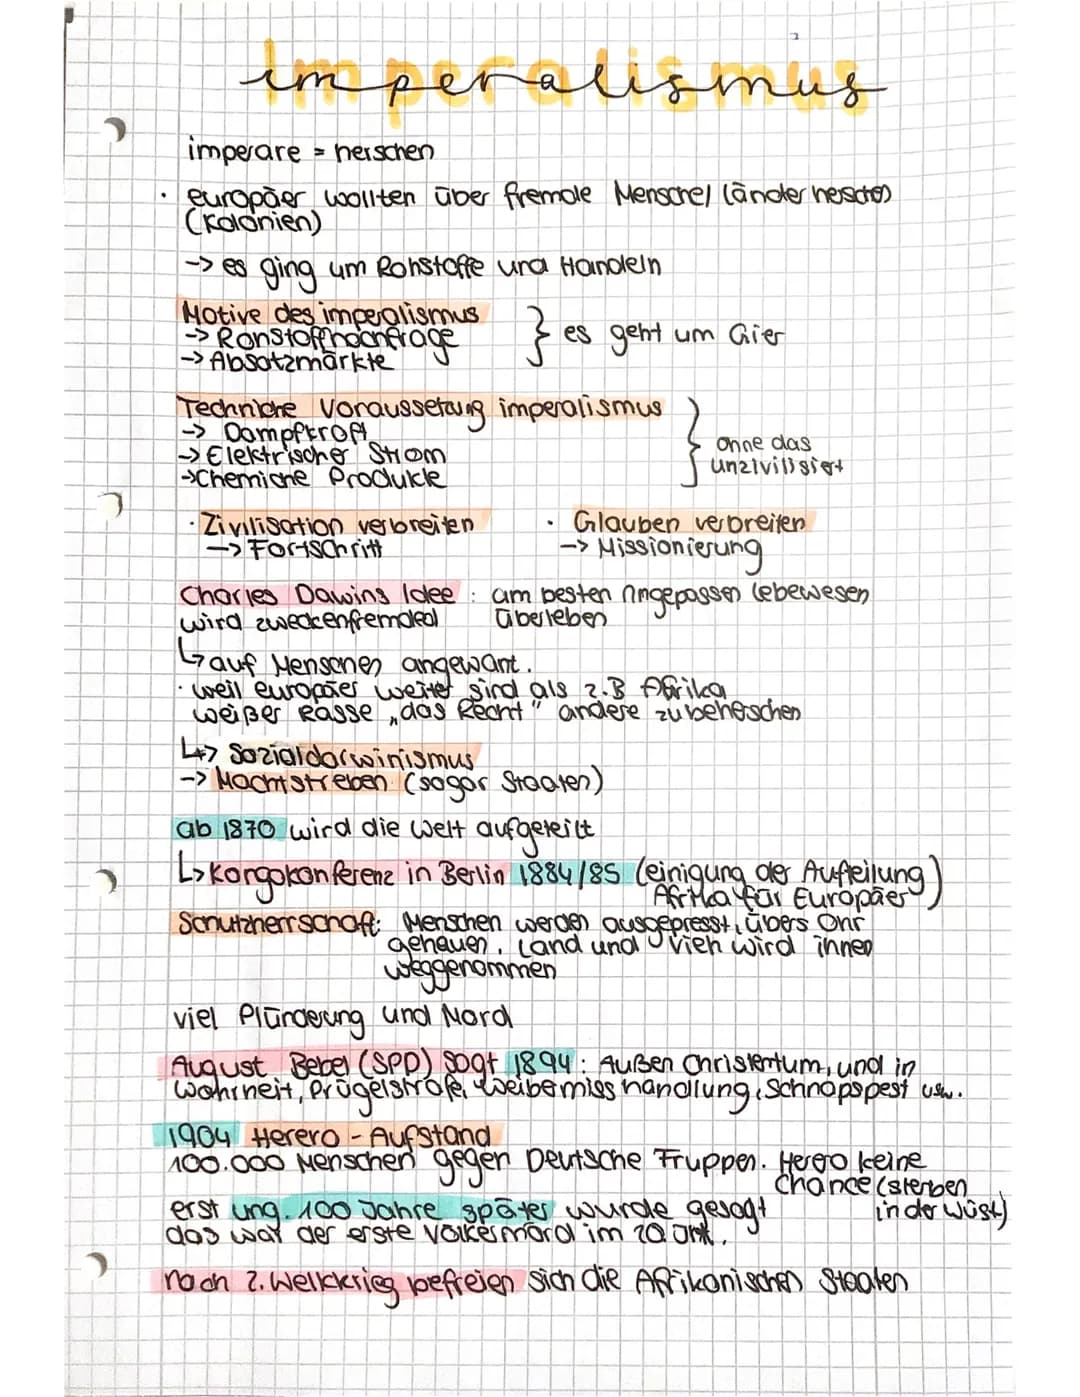 imperalismus
imperare = herschen
· europäer wollten über fremde Mensche/ länder herschen
(Kolonien)
-> es ging um Rohstoffe und Handeln
Motive des imperalismus
-> Rohstoffnachfrage } es geht um Gier
-> Absatzmärkte
Techniche Voraussetzung imperalismus
-> Dampfkraft
-> Elektrischer Strom } ohne das
->Chemiche Produkte unzivilisiert
· Zivilisation verbreiten · Glauben verbreiten
-> Fortschritt -> Missionierung
Charles Dawins Idee : am besten Angepassen Lebewesen
wird zweckenfremded überleben
↳ auf Menschen angewant.
· weil europäer weiter sind als z.B Afrika
weißer Rasse „das Recht" andere zu beherschen
↳> Sozialdarwinismus
-> Machtstreben (sogar Staaten)
ab 1870 wird die Welt aufgeteilt
↳ Kongokonferenz in Berlin 1884/85 (einigung der Aufteilung)
Afrika für Europäer
Schutzherrschaft: Menschen werden ausgepresst, übers Ohr
gehauen, Land und Vieh wird ihnen
weggenommen
viel Plünderung und Mord
August Bebel (SPD) sagt 1894: Außen Christentum, und in
Wahrheit, Prügelstrafe, Weibermisshandlung, Schnapspest usw.
1904 Herero - Aufstand
100.000 Menschen gegen Deutsche Truppen. Herero keine
Chance (sterben
erst ung. 100 Jahre später wurde gesagt in der Wüst)
das war der erste Völkermord im 20 Jhd.
nach 2. Weltkrieg befreien sich die Afrikanischen Staaten